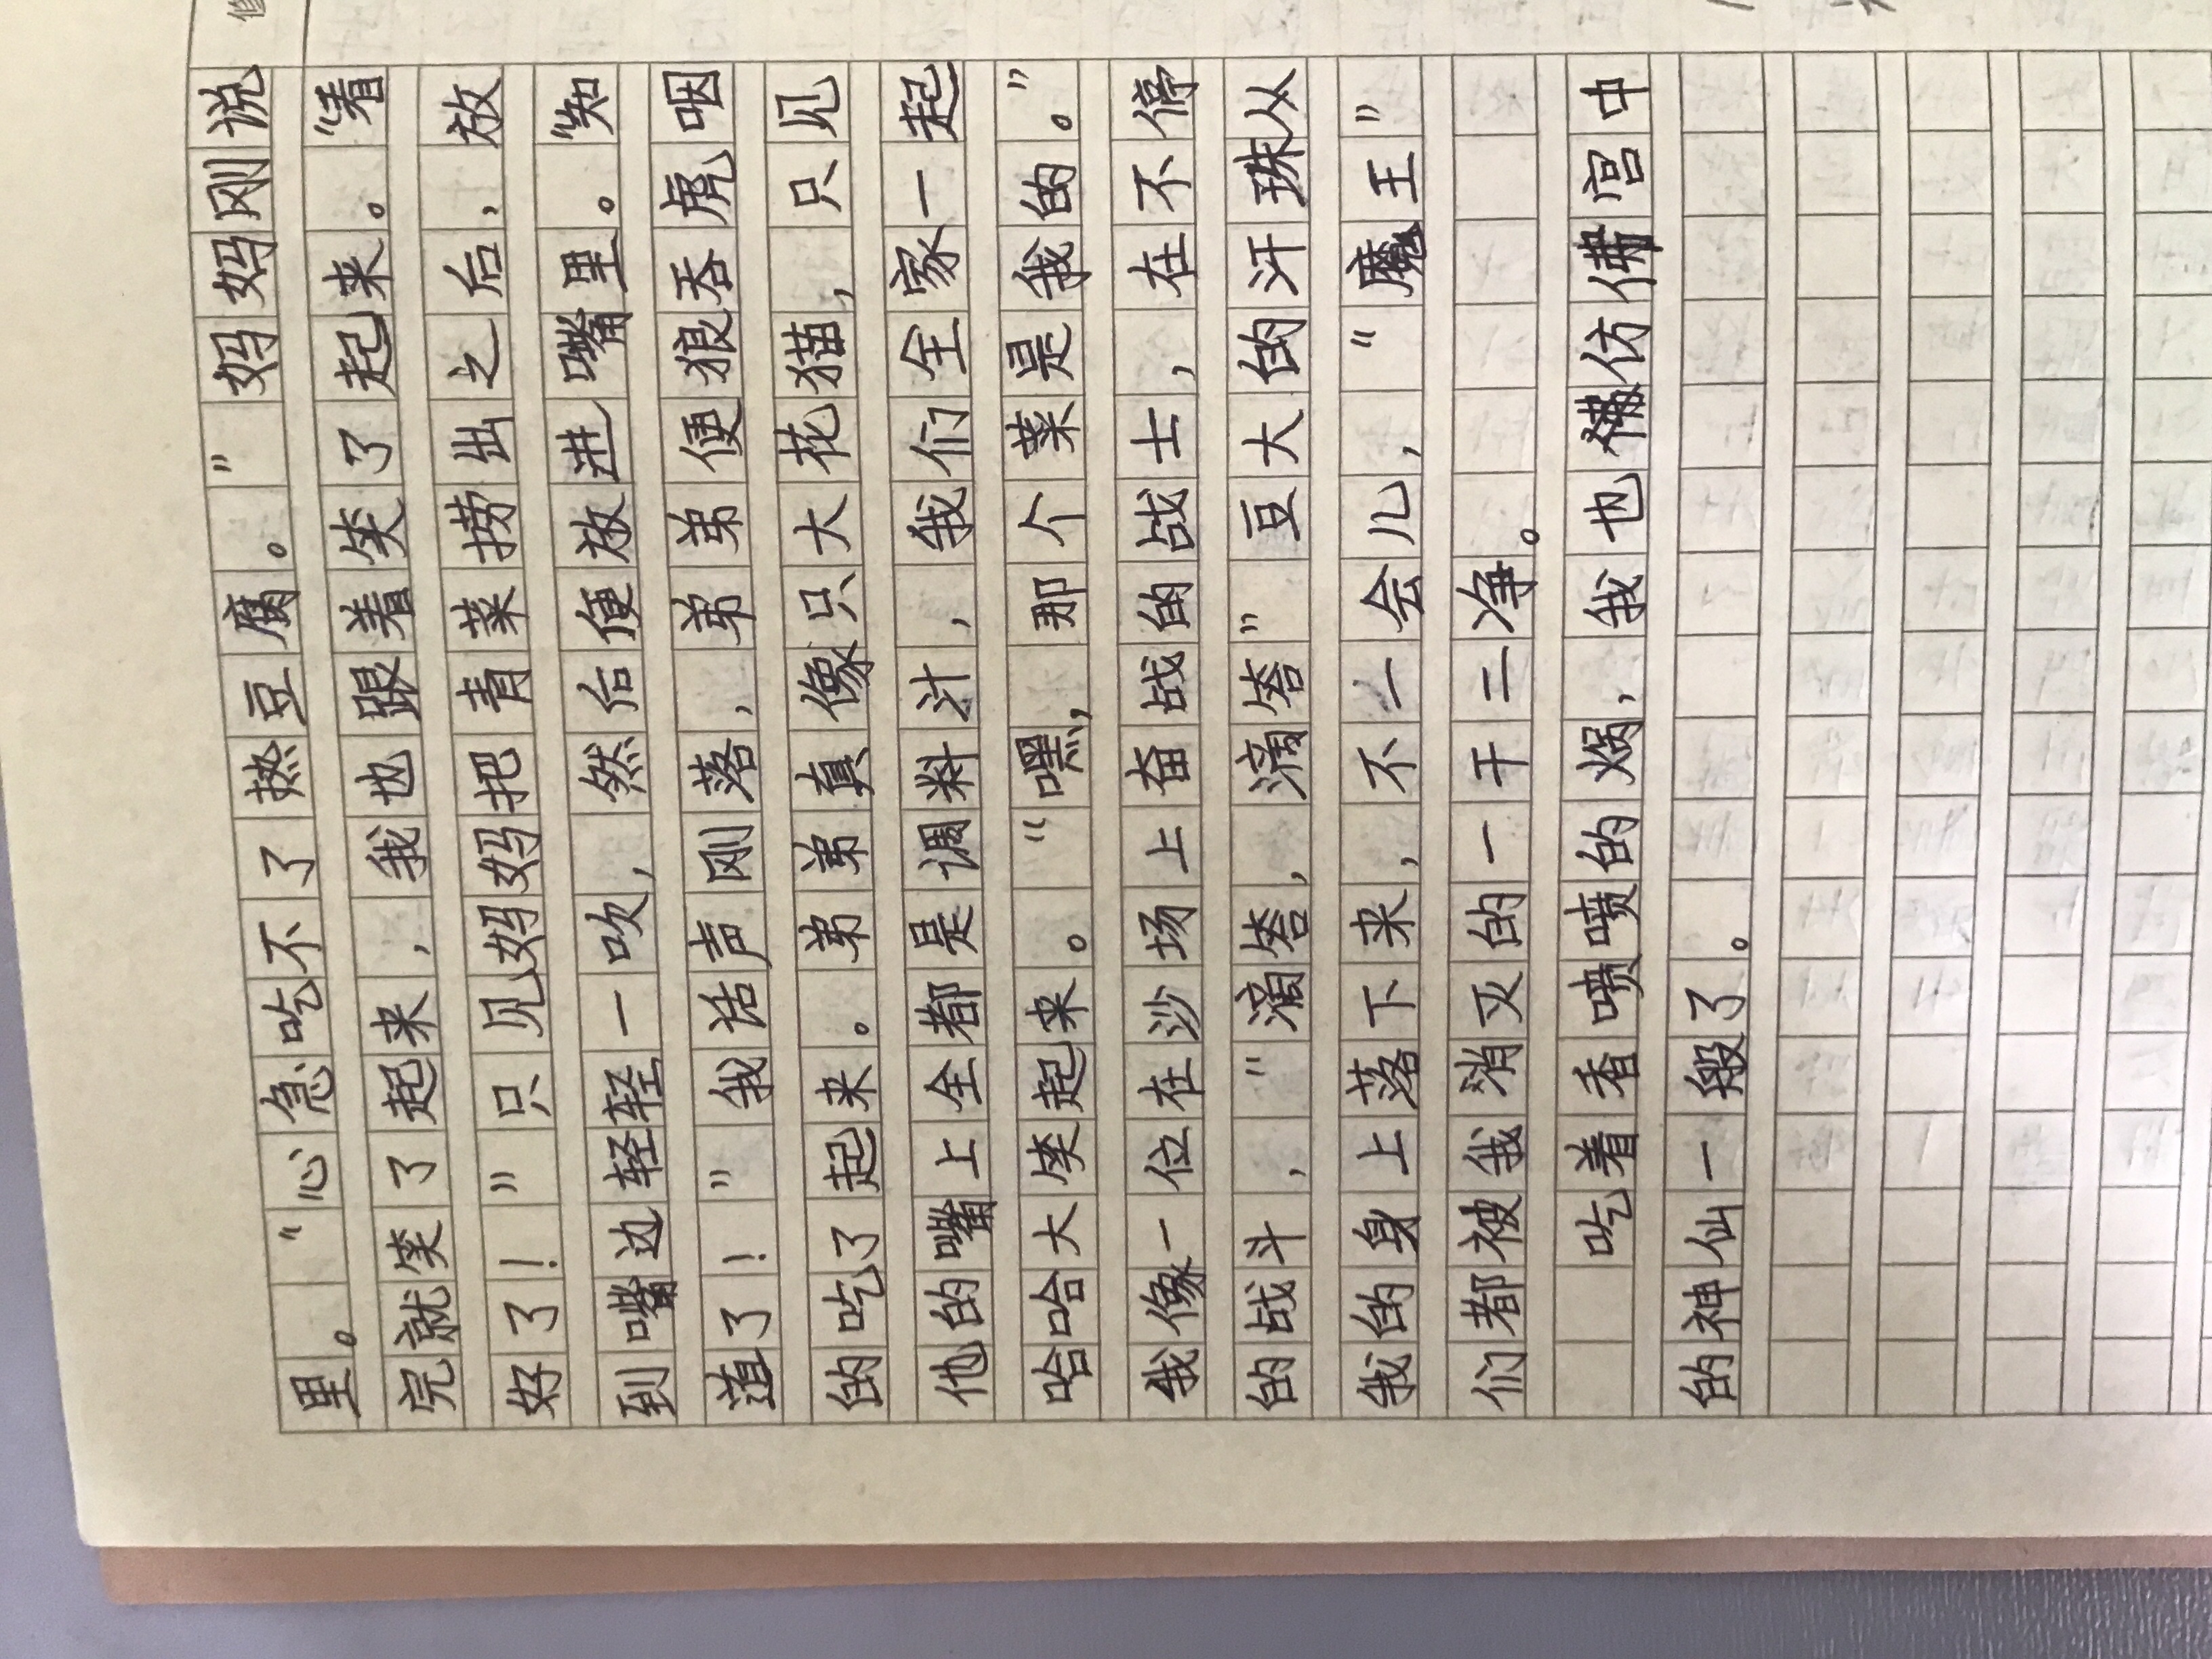 里。“心急吃不了热豆腐。”妈妈刚说
完就笑了起来，我也跟着笑了起来。“看
好了！”只见妈妈把青菜捞出之后，放
到嘴边轻轻一吹，然后便放进嘴里。“知
道了！”我话声刚落，弟弟便狼吞虎咽
的吃了起来。弟弟真像只大花猫，只见
他的嘴上全都是调料汁，我们全家一起
哈哈大笑起来。“嘿，那个菜是我的。”
我像一位在沙场上奋战的战士，在不停
的战斗，“滴答，滴答”豆大的汗珠从
我的身上落下来，不一会儿，“魔王”
们都被我消灭的一干二净。
吃着香喷喷的火锅，我也仿佛宫中
的神仙一般了。